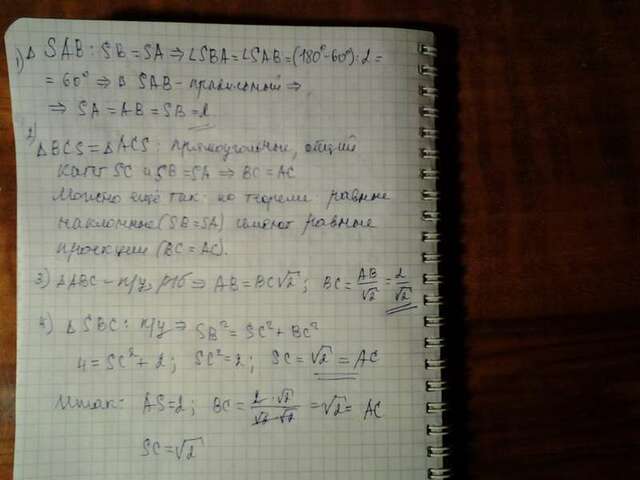 1) Δ SAB: SB = SA ⇒ ∠SBA = ∠SAB = (180° - 60°) : 2 =
= 60° ⇒ Δ SAB - правильный ⇒
⇒ SA = AB = SB = 2
2) Δ BCS = Δ ACS: прямоугольные, общий
катет SC и SB = SA ⇒ BC = AC
Можно ещё так: по теореме: равные
наклонные (SB = SA) имеют равные
проекции (BC = AC).
3) Δ ABC - п/у, р/б ⇒ AB = BC√2; BC = AB/√2 = 2/√2
4) Δ SBC: п/у ⇒ SB² = SC² + BC²
4 = SC² + 2; SC² = 2; SC = √2 = AC
Итак: AS = 2; BC = 2·√2/√2·√2 = √2 = AC
SC = √2